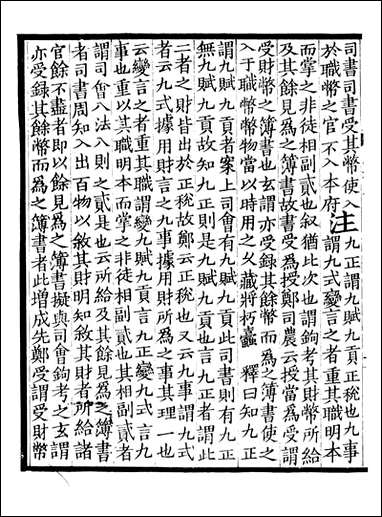 司書司書受其幣使入
於職幣之官不入本府注九正謂九賦九貢正稅也九事
謂九式變言之者重其職明本
而掌之非徒相副貳也叙猶比次也謂鉤考其財幣所給
及其餘見爲之簿書故書受爲授鄭司農云授當爲受謂
受財幣之簿書也玄謂亦受録其餘幣而爲之簿書使之
入于職幣幣物當以時用之乆藏將朽蠹 釋曰知九正
謂九賦九貢者案上司會有九賦九貢此司書則有九正
無九賦九貢故知九正則是九賦九貢也言九正者謂此
二者之財皆出於正稅故鄭云正稅也又云九事謂九式
者云九式據用財言之九事據用財所爲之事其理一也
云變言之者重其職謂變九賦九貢言九正變九式言九
事也重以其職明本而掌之非徒相副貳也其相副貳者
謂司會八法八則之貳是也云所給及其餘見爲之簿書
者司書周知入出百物以敘其財明知敘其財者所給諸
官餘不盡者即以餘見爲之簿書擬與司會鉤考之玄謂
亦受録其餘幣而爲之簿書者此增成先鄭受謂受財幣